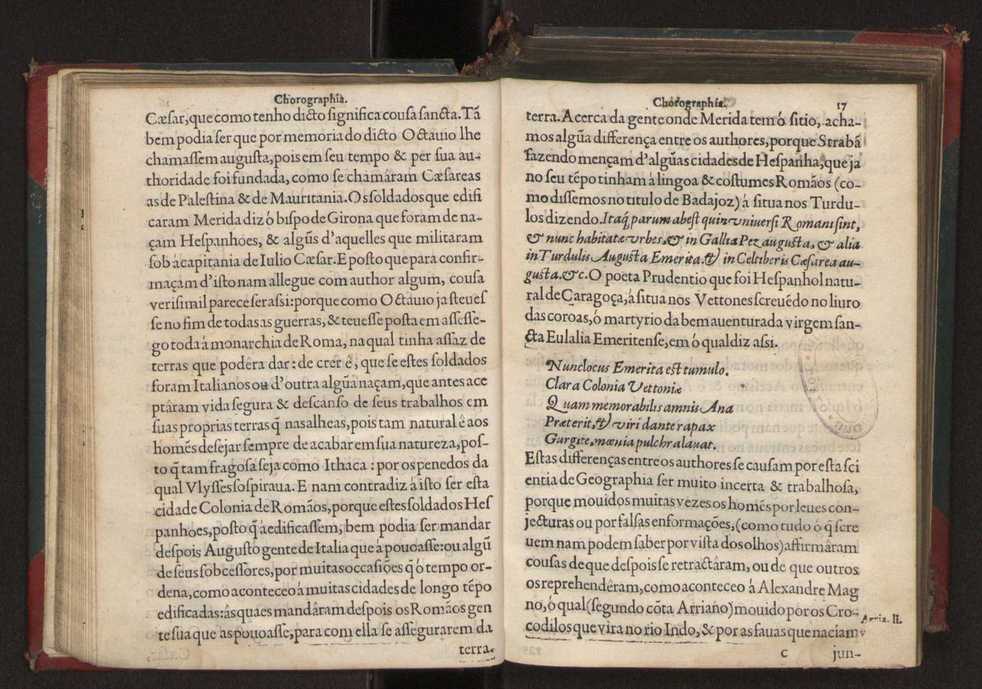 Chorographia.
Cæsar, que como tenho dicto significa cousa sancta. Tã
bem podia ser que por memoria do dicto Octauio lhe
chamassem augusta, pois em seu tempo & per sua au-
thoridade foi fundada, como se chamâram Cæsareas
as de Palestina & de Mauritania. Os soldados que edifi
caram Merida diz ò bispo de Girona que foram de na-
çam Hespanhoes, & algũs d'aquelles que militaram
sob à capitania de Iulio Cæsar. E posto que para confir-
maçam d'isto nam allegue com author algum, cousa
verisimil parece ser assi: porque como Octauio ja steues
se no fim de todas as guerras, & teuesse posta em assesse-
go toda à monarchia de Roma, na qual tinha assaz de
terras que podêra dar: de crer ê, que se estes soldados
foram Italianos ou d'outra algũa naçam, que antes ace
ptâram vida segura & descanso de seus trabalhos em
suas proprias terras q̃ nas alheas, pois tam natural ê aos
homẽs desejar sempre de acabar em sua natureza, pos-
to q̃ tam fragosa seja como Ithaca : por os penedos da
qual Vlysses sospiraua. E nam contradiz à isto ser esta
cidade Colonia de Romãos, porque estes soldados Hes
panhoes, posto q̃ à edificassem, bem podia ser mandar
despois Augusto gente de Italia que à pouoasse: ou algũ
de seus sobcessores, por muitas occasiões q̃ ò tempo or-
dena, como aconteceo à muitas cidades de longo tẽpo
edificadas: ás quaes mandâram despois os Romãos gen
te sua que as pouoasse, para com ella se assegurarem da
terra.
Chorographia.
17
terra. Acerca da gente onde Merida tem ò sitio, acha-
mos algũa differença entre os authores, porque Strabã
fazendo mençam d'algũas cidades de Hespanha, que ja
no seu tẽpo tinham à lingoa & costumes Romãos (co-
mo dissemos no titulo de Badajoz) à situa nos Turdu-
los dizendo. Itaq; parum abest quin vniuersi Romani sint,
& nunc habitatæ vrbes, & in Gallia Pez augusta, & alia
in Turdulis Augusta Emerita, & in Celtiberis Cæsarea au-
gusta, &c. O poeta Prudentio que foi Hespanhol natu-
ral de Caragoça, à situa nos Vettones screuẽdo no liuro
das coroas, ò martyrio da bemauenturada virgem san-
cta Eulalia Emeritense, em ò qual diz assi.
Nunc locus Emerita est tumulo.
Clara Colonia Vettoniæ
Quam memorabilis amnis Ana
Præterit, & viri dante rapax
Gurgite, mœnia pulchra lauat.
Estas differenças entre os authores se causam por esta sci
entia de Geographia ser muito incerta & trabalhosa,
porque mouidos muitas vezes os homẽs por leues con-
jecturas ou por falsas enformações, (como tudo ò q̃ scre
uem nam podem saber por vista dos olhos) affirmâram
cousas de que despois se retractâram, ou de que outros
os reprehendêram, como aconteceo á Alexandre Mag
no, ò qual (segundo cõta Arriano) mouido por os Cro-
codilos que vira no rio Indo, & por as fauas que naciam
Arria. ll.
c
jun-